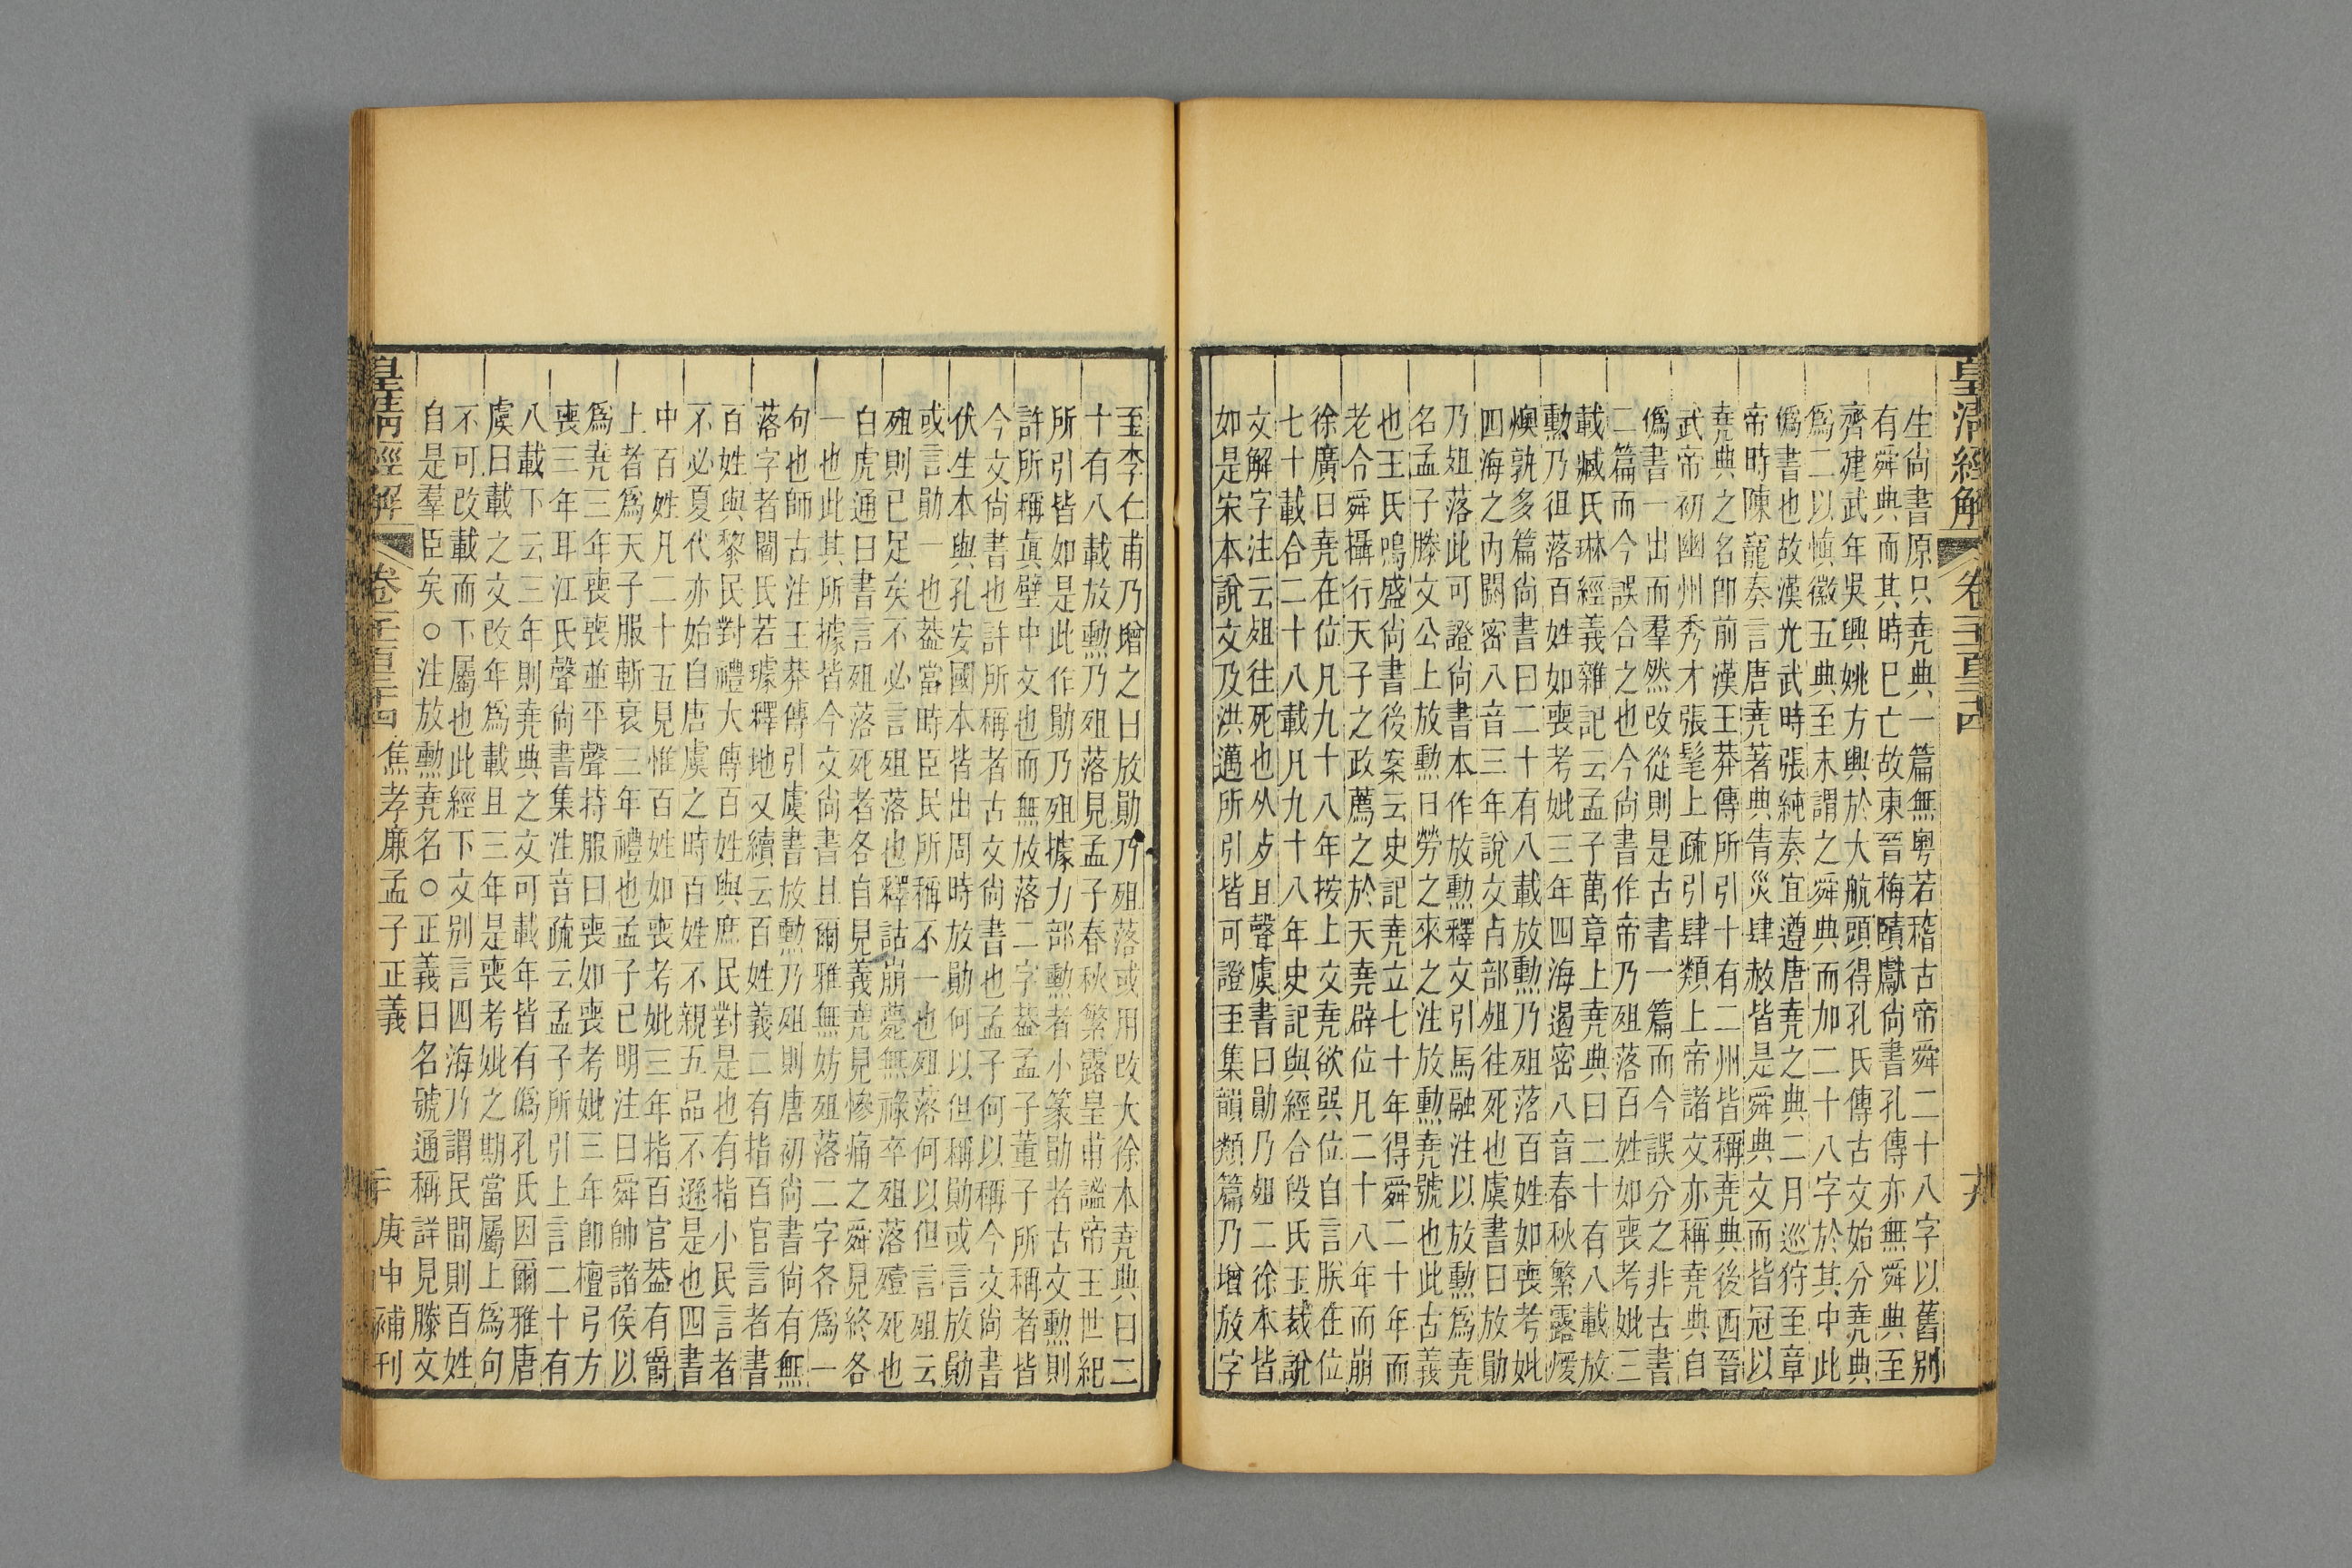 皇清經解
卷千百二十四
十九
生尙書原只堯典一篇無粤若稽古帝舜二十八字以舊別
有舜典而其時已亡故東晉梅賾獻尙書孔傳亦無舜典至
齊建武年吳興姚方興於大航頭得孔氏傳古文始分堯典
爲二以愼徽五典至末謂之舜典而加二十八字於其中此
僞書也故漢光武時張純奏宜遵唐堯之典二月巡狩至章
帝時陳寵奏言唐堯著典眚災肆赦皆是舜典文而皆冠以
堯典之名卽前漢王莽傳所引十有二州皆稱堯典後西晉
武帝初幽州秀才張髦上疏引肆類上帝諸文亦稱堯典自
僞書一出而羣然改從則是古書一篇而今誤分之非古書
二篇而今誤合之也今尙書作帝乃殂落百姓如喪考妣三
載臧氏琳經義雜記云孟子萬章上堯典曰二十有八載放
勳乃徂落百姓如喪考妣三年四海遏密八音春秋繁露煖
燠孰多篇尙書曰二十有八載放勳乃殂落百姓如喪考妣
四海之內闕密八音三年說文歺部殂往死也虞書曰放勛
乃殂落此可證尙書本作放勳釋文引馬融注以放勳爲堯
名孟子滕文公上放勳曰勞之來之注放勳堯號也此古義
也王氏鳴盛尙書後案云史記堯立七十年得舜二十年而
老合舜攝行天子之政薦之於天堯辟位凡二十八年而崩
徐廣曰堯在位凡九十八年按上文堯欲巽位自言朕在位
七十載合二十八載凡九十八年史記與經合段氏玉裁說
文解字注云殂往死也从歺且聲虞書曰勛乃殂二徐本皆
如是宋本說文及洪邁所引皆可證至集韻類篇乃增放字
至李仁甫乃增之曰放勛乃殂落或用改大徐本堯典曰二
十有八載放勳乃殂落見孟子春秋繁露皇甫謐帝王世紀
所引皆如是此作勛乃殂據力部勳者小篆勛者古文勳則
許所稱眞壁中文也而無放落二字葢孟子董子所稱者皆
今文尙書也許所稱者古文尙書也孟子何以稱今文尙書
伏生本與孔安國本皆出周時放勛何以但稱勛或言放勛
或言勛一也葢當時臣民所稱不一也殂落何以但言殂云
殂則已足矣不必言殂落也釋詁崩薨無祿卒殂落殪死也
白虎通曰書言殂落死者各自見義堯見憯痛之舜見終各
一也此其所據皆今文尙書且爾雅無妨殂落二字各爲一
句也師古注王莽傳引虞書放勳乃殂則唐初尙書尙有無
落字者閻氏若璩釋地又續云百姓義二有指百官言者書
百姓與黎民對禮大傳百姓與庶民對是也有指小民言者
不必夏代亦始自唐虞之時百姓不親五品不遜是也四書
中百姓凡二十五見惟百姓如喪考妣三年指百官葢有爵
上者爲天子服斬衰三年禮也孟子已明注曰舜帥諸侯以
爲堯三年喪喪並平聲持服曰喪如喪考妣三年卽檀弓方
喪三年耳江氏聲尙書集注音疏云孟子所引上言二十有
八載下云三年則堯典之文可載年皆有僞孔氏因爾雅唐
虞曰載之文改年爲載且三年是喪考妣之期當屬上爲句
不可改載而下屬也此經下文別言四海乃謂民間則百姓
自是羣臣矣○注放勳堯名○正義曰名號通稱詳見滕文
皇淸經解
卷千百二十四
焦孝廉孟子正義
二十
庚申補刊